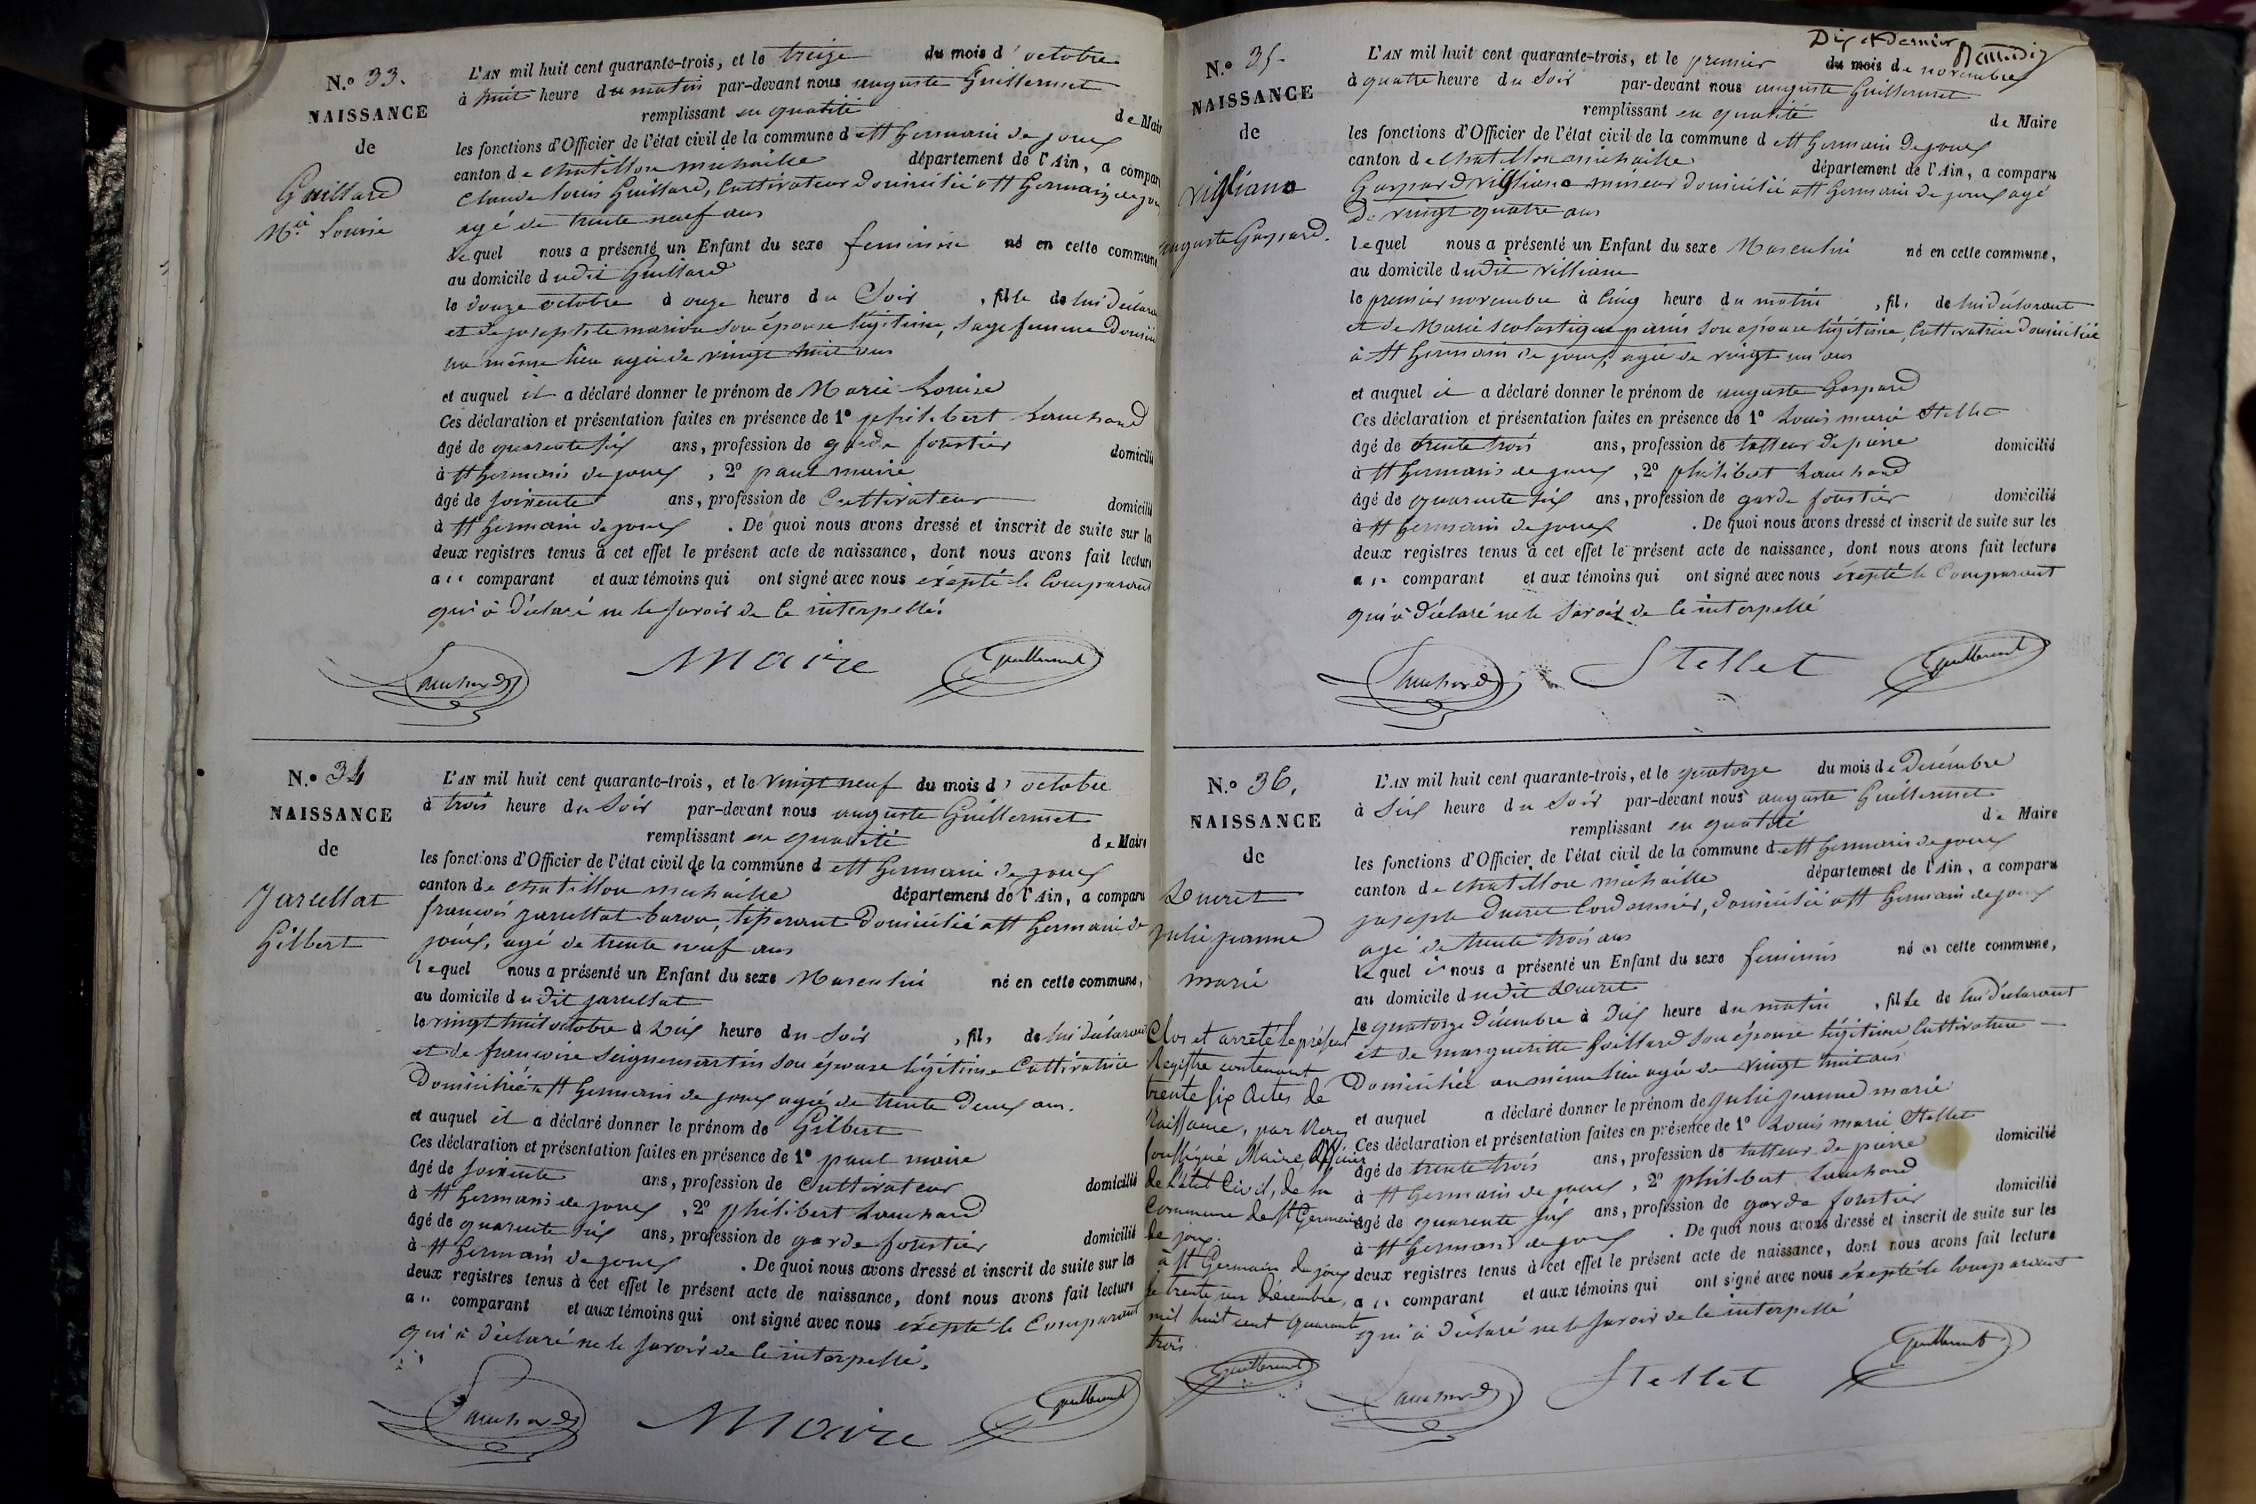 N.° 33.
NAISSANCE
de
Guillard
M.ie Louise
L'AN mil huit cent quarante-trois, et le treize du mois d'octobre
à huit heure du matin par-devant nous auguste Guillermet
remplissant en qualité de Maire
les fonctions d'Officier de l'état civil de la commune de St Germain de joux
canton de chatillon michaille département de l'Ain, a compar
Claude Louis Guillard, Cultivateur domicilié à St Germain de jou
agé de trente neuf ans
lequel nous a présenté un Enfant du sexe feminin né en cette commune
au domicile dudit Guillard
le douze octobre à onze heure du Soir, fille de lui déclara
et de josephte marion son épouse légitime, sage femme domici
au même lieu agée de vingt huit ans
et auquel il a déclaré donner le prénom de Marie Louise
Ces déclaration et présentation faites en présence de 1° philibert Lauchard
âgé de quarente six ans, profession de garde forestier domicilié
à St Germain de joux, 2° paul maire
âgé de soixente ans, profession de Cultivateur domicilié
à St Germain de joux. De quoi nous avons dressé et inscrit de suite sur le
deux registres tenus à cet effet le présent acte de naissance, dont nous avons fait lecture
a u comparant et aux témoins qui ont signé avec nous éxepté le Comparant
qui à déclaré ne le savoir de Ce interpellé.
Lauchard Maire Guillermet
N.° 34
NAISSANCE
de
Jarcellat
Gilbert
L'AN mil huit cent quarante-trois, et le vingt neuf du mois d'octobre
à trois heure du Soir par-devant nous auguste Guillermet
remplissant en qualité de Maire
les fonctions d'Officier de l'état civil de la commune de St Germain de joux
canton de chatillon michaille département de l'Ain, a comparu
francois jarcellat baron, tisserant domicilié à St Germain de
joux, agé de trente neuf ans
lequel nous a présenté un Enfant du sexe Masculin né en cette commune,
au domicile dudit jarcellat
le vingt huit octobre à Dix heure du Soir, fils de lui déclarant
et de francoise Seignemartin son épouse légitime Cultivatrice
Domiciliée à St Germain de joux agée de trente deux ans.
et auquel il a déclaré donner le prénom de Gilbert
Ces déclaration et présentation faites en présence de 1° paul maire
âgé de soixente ans, profession de Cultivateur domicilié
à St Germain de joux, 2° philibert Lauchard
âgé de quarente six ans, profession de garde forestier domicilié
à St Germain de joux. De quoi nous avons dressé et inscrit de suite sur les
deux registres tenus à cet effet le présent acte de naissance, dont nous avons fait lecture
a u comparant et aux témoins qui ont signé avec nous éxepté le Comparant
qui à déclaré ne le savoir de Ce interpellé.
Lauchard Maire Guillermet
Dix et Dernier
N.° 35.
NAISSANCE
de
Villiana
auguste Gaspard.
L'AN mil huit cent quarante-trois, et le premier du mois de novembre
à quatre heure du Soir par-devant nous auguste Guillermet
remplissant en qualité de Maire
les fonctions d'Officier de l'état civil de la commune de St Germain de joux
canton de chatillon michaille département de l'Ain, a comparu
Gaspard Villiana mineur domicilié à St Germain de joux agé
de vingt quatre ans
lequel nous a présenté un Enfant du sexe Masculin né en cette commune,
au domicile dudit villiana
le premier novembre à Cinq heure du matin, fils de lui déclarant
et de Marie scolastique perrin son épouse légitime, Cultivatrice domiciliée
à St Germain de joux, agée de vingt un ans
et auquel il a déclaré donner le prénom de auguste Gaspard
Ces déclaration et présentation faites en présence de 1° Louis marie Stellet
âgé de trente trois ans, profession de tailleur de pierre domicilié
à St Germain de joux, 2° philibert Lauchard
âgé de quarente six ans, profession de garde forestier domicilié
à St Germain de joux. De quoi nous avons dressé et inscrit de suite sur les
deux registres tenus à cet effet le présent acte de naissance, dont nous avons fait lecture
a u comparant et aux témoins qui ont signé avec nous éxepté le Comparant
qui à déclaré ne le savoir de Ce interpellé
Lauchard Stellet Guillermet
N.° 36.
NAISSANCE
de
Ducret
julie jeanne
marie
L'AN mil huit cent quarante-trois, et le quatorze du mois de Decémbre
à Six heure du Soir par-devant nous auguste Guillermet
remplissant en qualité de Maire
les fonctions d'Officier de l'état civil de la commune de St Germain de joux
canton de chatillon michaille département de l'Ain, a comparu
joseph Ducret Cordonnier, domicilié à St Germain de joux
agé de trente trois ans
lequel nous a présenté un Enfant du sexe feminin né en cette commune,
au domicile dudit Ducret
le quatorze Décembre à Dix heure du matin, fille de lui déclarant
et de margueritte Guillard son épouse légitime Cultivatrice
Domiciliée au même lieu agée de vingt huit ans
et auquel a déclaré donner le prénom de julie jeanne marie
Ces déclaration et présentation faites en présence de 1° Louis marie Stellet
âgé de trente trois ans, profession de tailleur de pierre domicilié
à St Germain de joux, 2° philibert Lauchard
âgé de quarente six ans, profession de garde forestier domicilié
à St Germain de joux. De quoi nous avons dressé et inscrit de suite sur les
deux registres tenus à cet effet le présent acte de naissance, dont nous avons fait lecture
a u comparant et aux témoins qui ont signé avec nous éxepté le Comparant
qui à déclaré ne le savoir de Ce interpellé
Lauchard Stellet Guillermet
Clos et arrêté le présent
Registre contenant
trente six Actes de
Naissance, par Nous
soussigné Maire, officier
de l'état Civil, de la
Commune de St Germain
de joux.
à St Germain de joux
le trente un Décembre,
mil huit cent quarante
trois.
Guillermet